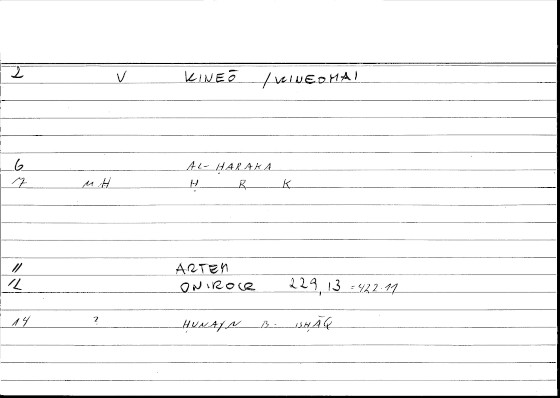 2 V KINEŌ / KINEOMAI
6 AL-ḤARAKA
7 MH Ḥ R K
11 ARTEM
12 ONIROCR 229,13 =422.11
14 ? ḤUNAYN B- ISḤĀQ